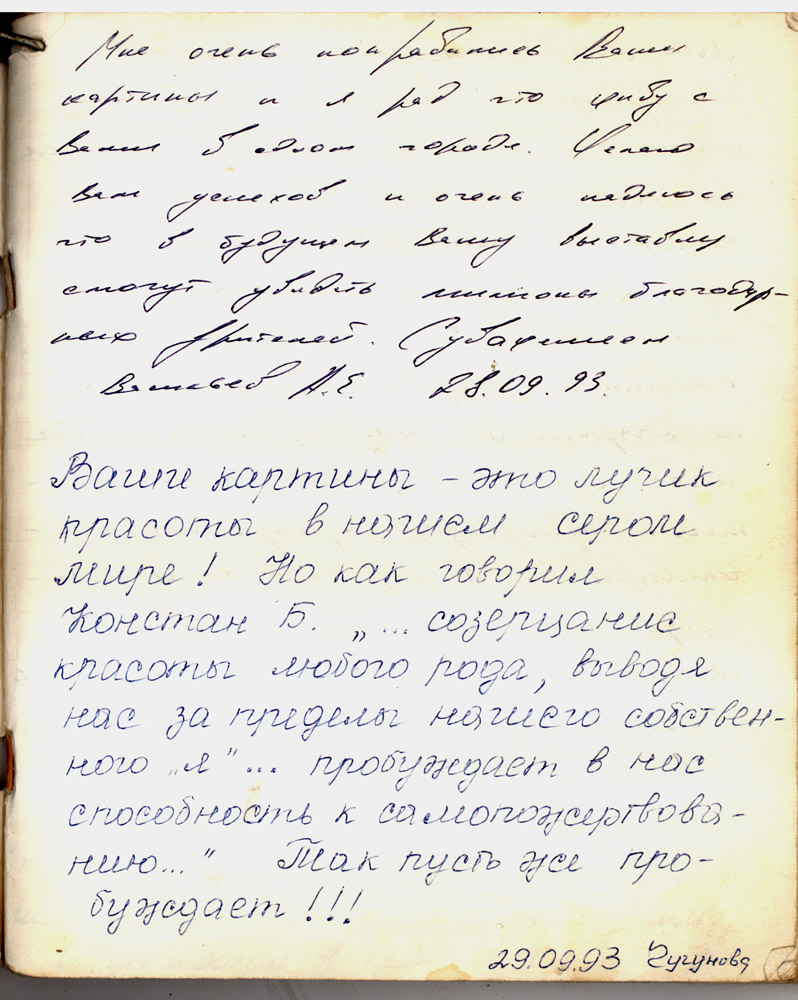 Мне очень понравились Ваши
картины и я рад что живу с
Вами в одном городе. Желаю
Вам успехов и очень надеюсь
что в будущем Вашу выставку
смогут увидеть миллионы благодар-
ных зрителей. С уважением
А.Е. 28.09.93.
Ваши картины – это лучик
красоты в нашем сером
мире! Но как говорил
Констан Б. „... созерцание
красоты любого рода, выводя
нас за пределы нашего собствен-
ного „я" ... пробуждает в нас
способность к самопожертвова-
нию..." Так пусть же про-
буждает!!!
29.09.93 Чугунова